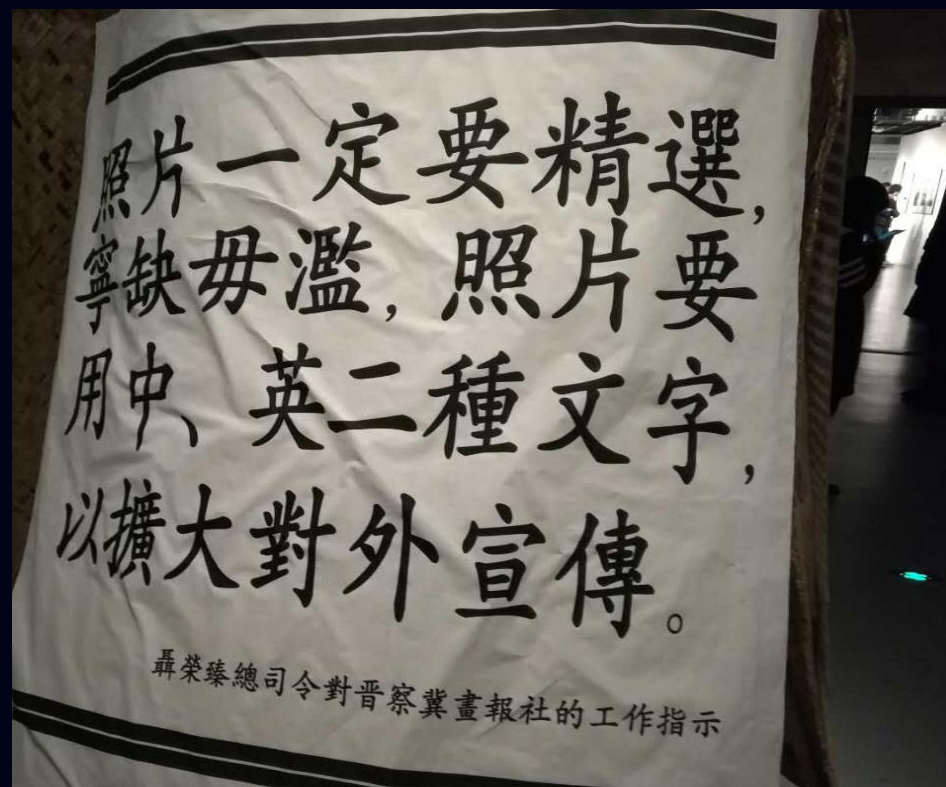 照片一定要精選，
寧缺毋濫，照片要
用中、英二種文字，
以擴大對外宣傳。
聶榮臻總司令對晋察冀畫報社的工作指示